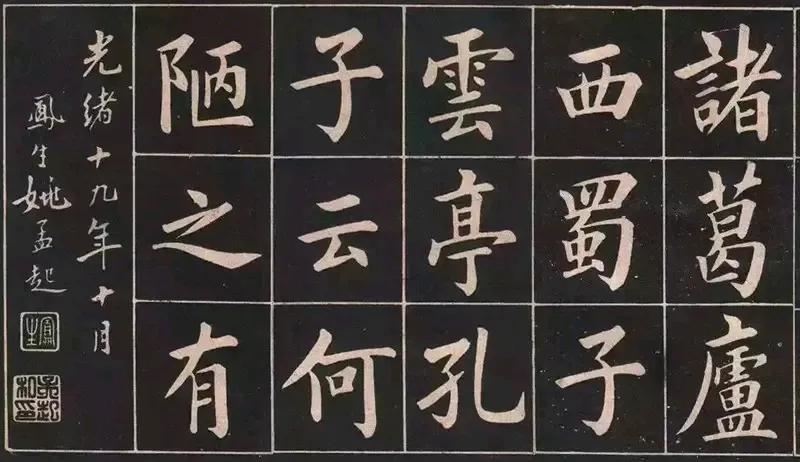 諸葛廬
西蜀子
雲亭孔
子云何
陋之有
光緒十九年十月
鳳生姚孟起
鳳生
孟起私印